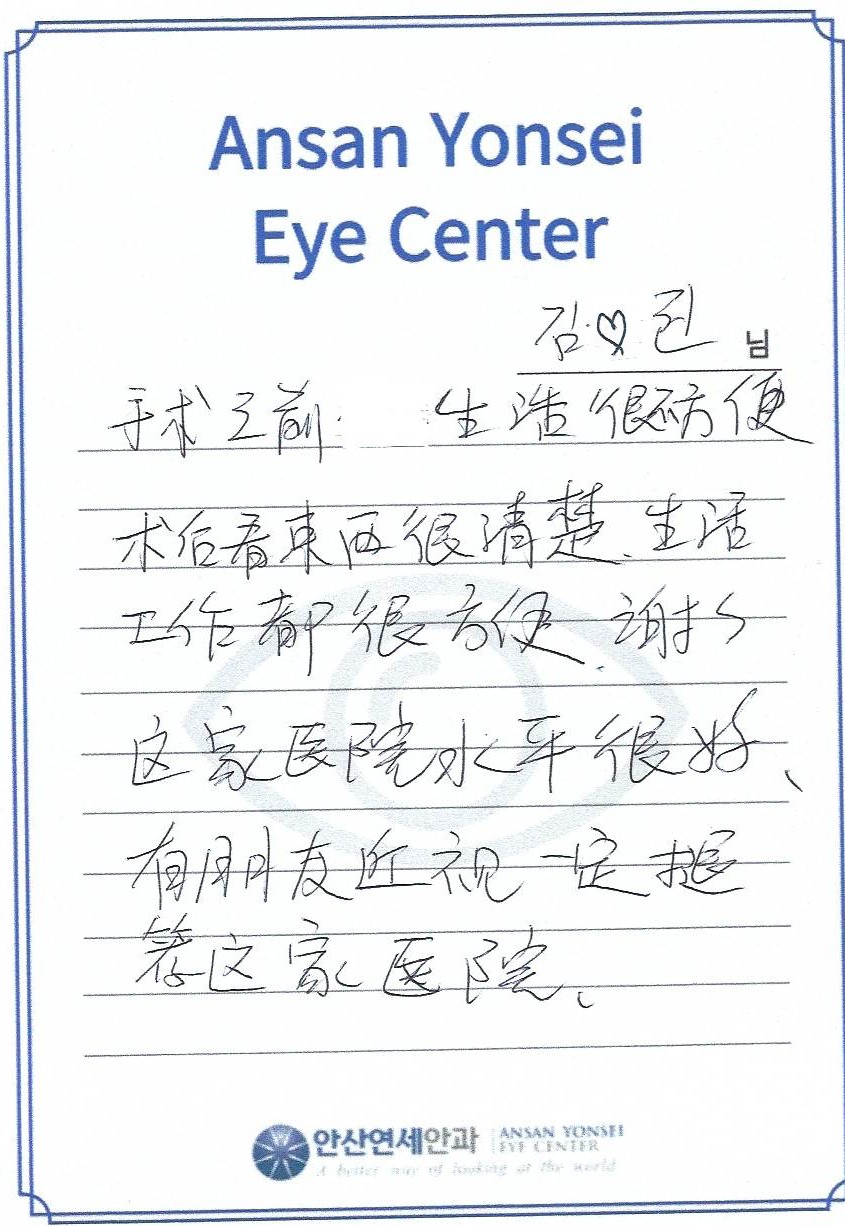 Ansan Yonsei
Eye Center
김♡진 님
手术之前. 生活很不方便
术后看東西很清楚、生活
工作都很方便.谢谢
这家医院水平很好、
有朋友近视一定推
荐这家医院、
안산연세안과 ANSAN YONSEI
EYE CENTER
A better way of looking at the world